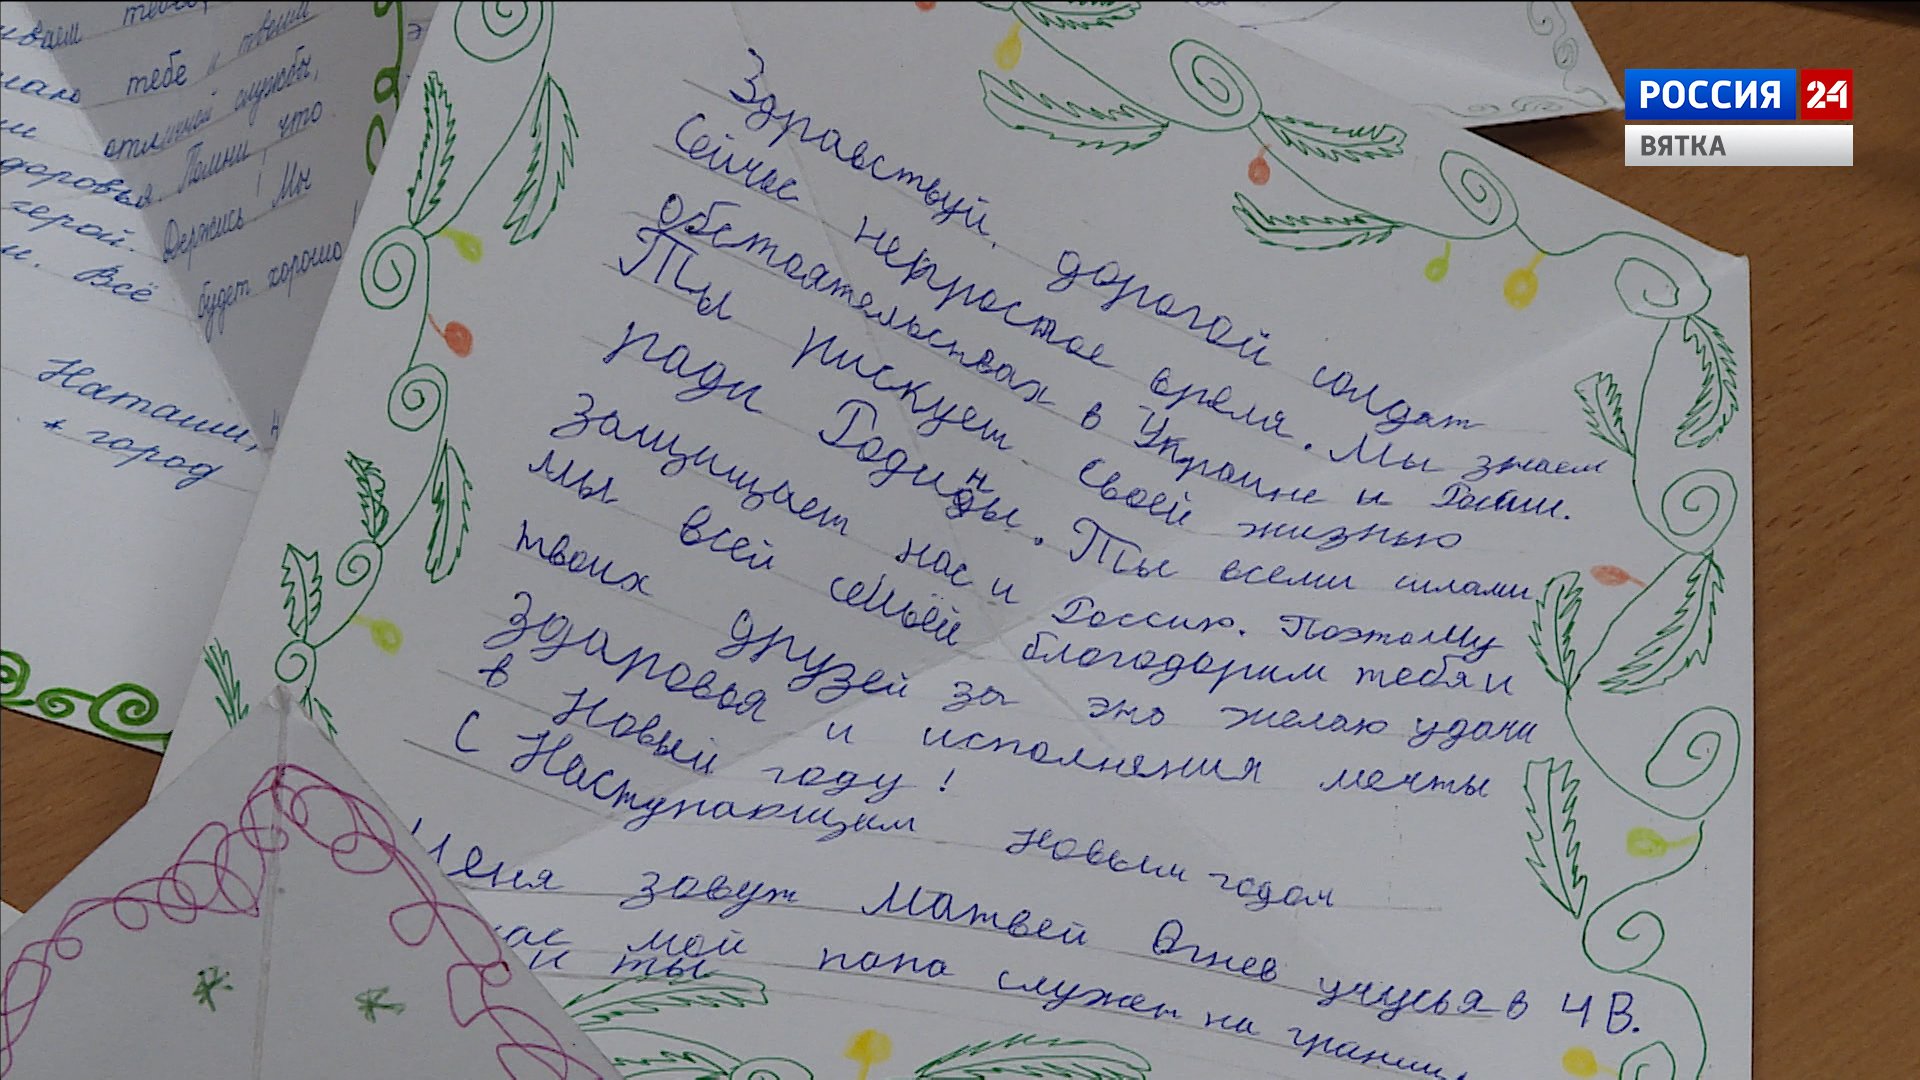 тебе и твоим
отличной службы,
Помни что
доровья.
Держись! Мы
герой.
Всё
будет хорошо
Наташи,
+ город
РОССИЯ 24
ВЯТКА
Здравствуй, дорогой солдат
Сейчас непростое время. Мы знаем
обстоятельствах в Украине и России.
Ты рискует своей жизнью
ради Родины. Ты всеми силами
защищает нас и Россию. Поэтому
мы всей семьёй благодарим тебя и
твоих друзей за это желаю удачи
здаровья и исполнения мечты
в Новый году!
С Наступающим новым годом
Меня зовут Матвей Огнев учусья в 4 В.
мой папа служет на границ
и ты